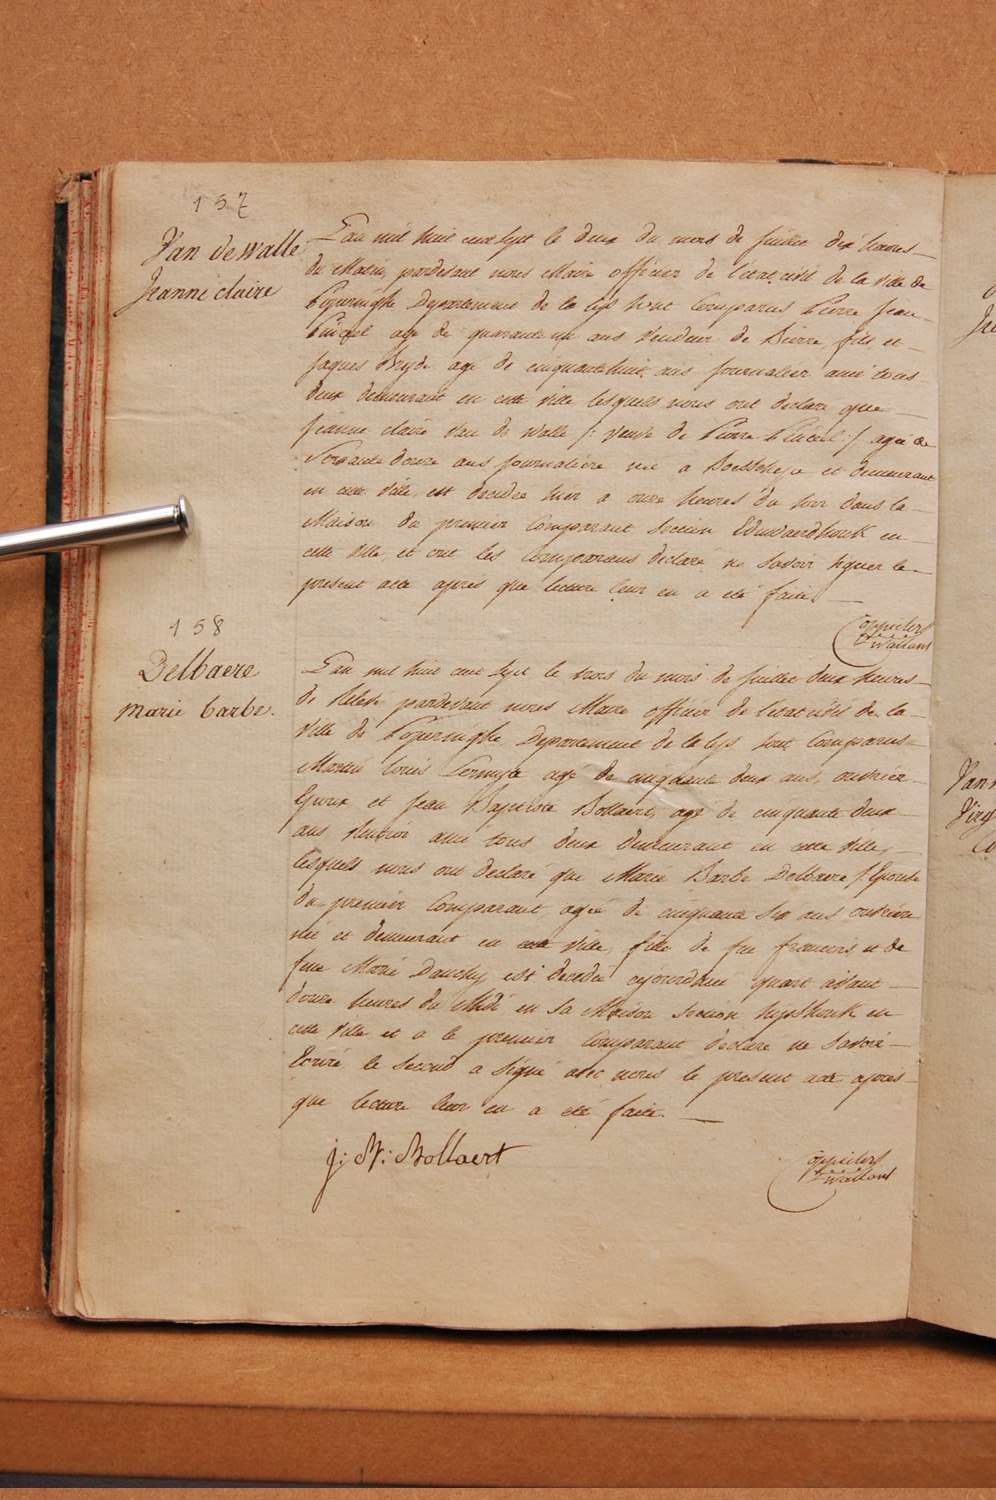 157
Van de Walle
Jeanne claire
L'an mil huit cent sept le deux du mois de juillet dix heures
du Matin, pardevant nous Maire officier de l'etat civil de la ville de
Poperinghe Departement de la Lys sont Comparus Pierre Jean
agé de quarante un ans Vendeur de Bierre, fils et
Jaques agé de cinquantehuit ans journalier ami tous
deux demeurant en cette ville lesquels nous ont declaré que
jeanne claire Van de Walle /: veuve de Pierre :/ agée de
Soixante douze ans journalière née a Boesthepe et demeurant
en cette Ville est decedée hier a onze heures du soir dans la
Maison du premier Comparant Section Edewaerdhouk en
cette Ville, et ont les Comparans declaré ne Savoir signer le
present acte apres que lecture leur en a été faite.
158
Delbaere
Marie barbe.
L'an mil huit cent Sept le trois du mois de juillet deux heures
de Relevé pardevant nous Maire officier de l'etat civil de la
Ville de Poperinghe Departement de la Lys sont Comparus
Martin Louis agé de cinquante deux ans, ouvrier
Epoux et Jean Baptiste Bollaert, agé de cinquante deux
ans ami tous deux demeurant en cette Ville,
lesquels nous ont declaré que Marie Barbe Delbaere / Epouse
du premier Comparant agée de cinquante Six ans ouvrière
née et demeurant en cette Ville, fille de feu francois, et de
feue Marie Dauchy est decedée cejourdhui quart avant
douze heures du Midi en sa Maison Section hipshouk en
cette Ville et a le premier Comparant declare ne Savoir
Ecrire, le second a Signé avec nous le present acte apres
que lecture leur en a eté faite.
J: B: Bollaert